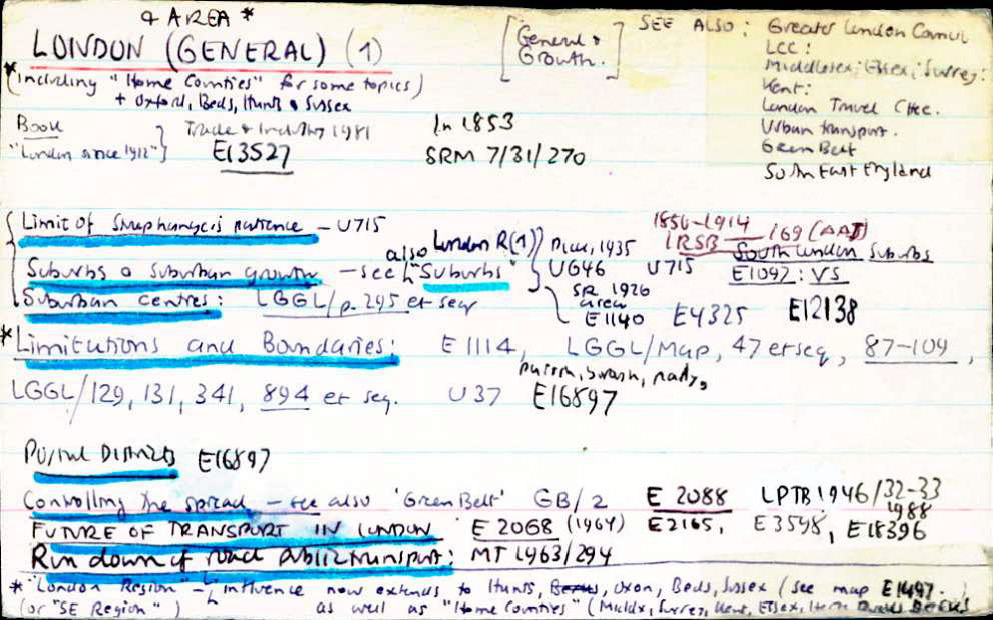 & AREA *
LONDON (GENERAL) (1)
[General & Growth.]
SEE ALSO: Greater London Council
LCC:
Middlesex; Essex; Surrey:
Kent:
London Travel Cttee.
Urban transport.
Green Belt
South East England
* (including "Home Counties" for some topics)
+ Oxford, Beds, Hunts & Sussex
Book
"London since 1912" }
Trade & Industry 1981
E13527
In 1853
SRM 7/31/270
Limit of patience - U715
Suburbs & suburban growth - see also "Suburbs"
London R(1)
Dial, 1935
UG46
U715
1856-1914
IRSB 169 (AAJ)
South London Suburbs
E1092: VS
SR 1926
area
E1140
E4325
E12138
Suburban centres: LGGL/p. 295 et seq
* Limitations and Boundaries: E1114, LGGL/Map, 47 et seq, 87-109,
LGGL/129, 131, 341, 894 et seq. U37 E16897
Postal Districts E16897
Controlling the spread - see also 'Green Belt' GB/2 E 2088 LPTB 1946/32-33
1988
FUTURE OF TRANSPORT IN LONDON E 2068 (1964) E2165, E3548, E18396
Run down of road public transport: MT 1963/294
* "London Region" - influence now extends to Hunts, Oxon, Beds, Sussex (see map E1497.)
(or "SE Region") as well as "Home Counties" (Middx, Surrey, Kent, Essex, Herts BUCKS